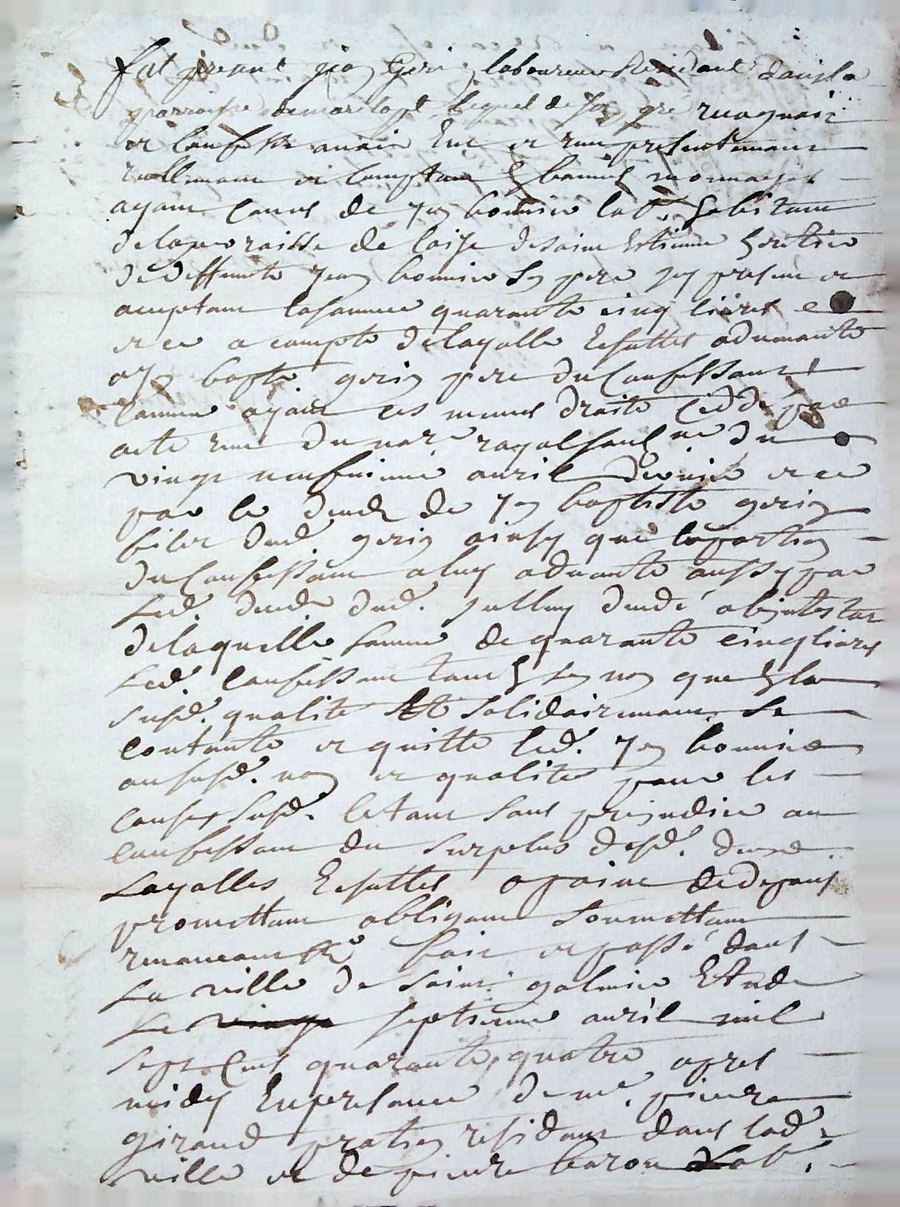 fut present jean Gerin laboureur Residant dans la
parroisse de marclopt lequel de son gré recognoit
et confesse avoir Eue et reçu presentemant
reellemant et comptant en bonnes monnoyes
ayant cours de jean bonnier lab.r habitant
de la parroisse de saint Estienne heritier
de deffunte jean bonnier son pere icy presant et
aceptant la somme quarante cinq livres
et ce a compte de legalle Escuttes advenante
a jean bapte gerin pere du Confessant
comme ayant ces memes droits cedés par
acte reçu du no.re royal soub.né du
vingt neufvieme avril dernier et ce
par le deceds de jean baptiste gerin
dud. gerin ainsy que la portion
du Confessant a luy advenante aussy par
Led. deceds dud. decedé abintestat
de laquelle somme de quarante cinq livres
Led. Confessant tant en son nom que en la
susd. qualité solidairemant se
contante et quitte led. jean bonnier
au susd. nom et qualité pour les
causes susd. le tout sans prejudice au
confessant du surplus desd.
Escuttes a paine de depans
promettant obligeant soumettant
renonceant &c fait et passé dans
La ville de saint galmier Etude
Le septieme avril mil
sept Cent quarante quatre apres
midy En presance de me. pierre
giraud praticien residant dans lad.
ville et de pierre baron lab.r